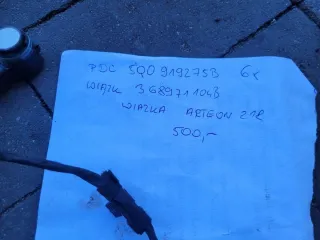 PDC 5Q0919275B 6x
WIĄZK 3G8971104B
WIĄZKA ARTEON 21R
500,-